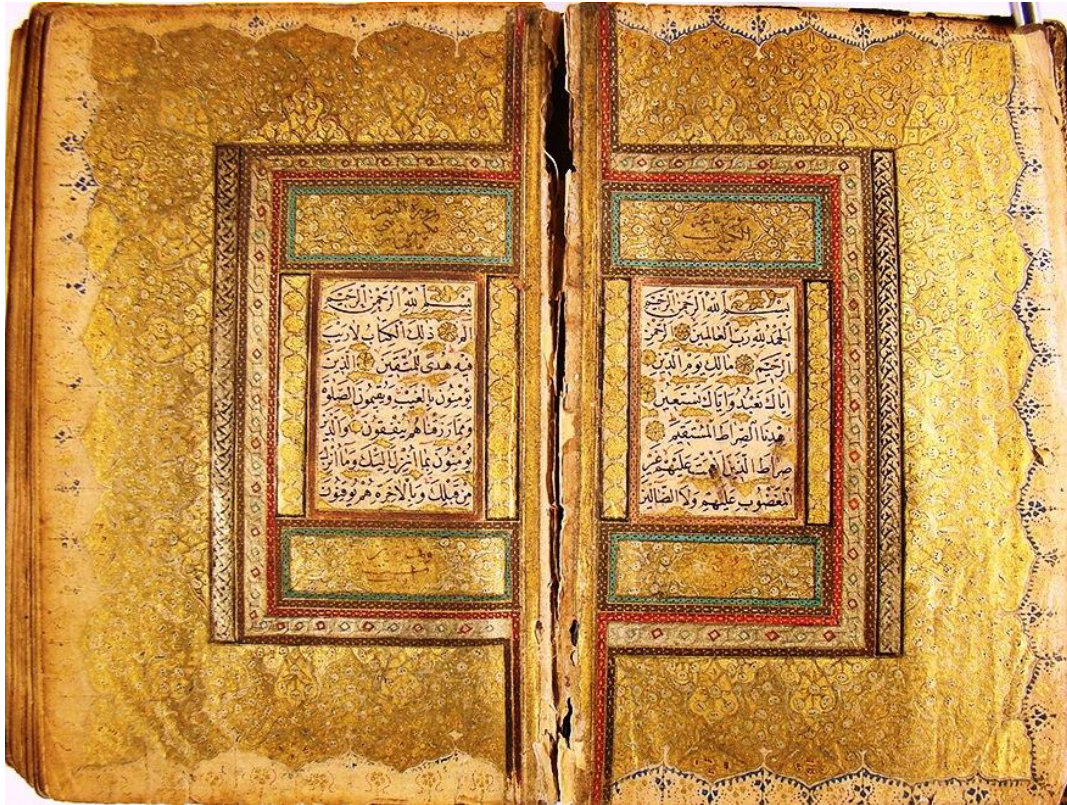 الكتاب
بِسْمِ اللهِ الرَّحْمٰنِ الرَّحِيمِ
اَلْحَمْدُ لِلهِ رَبِّ الْعَالَمِينَ الرَّحْمٰنِ
الرَّحِيمِ مَالِكِ يَوْمِ الدِّينِ
اِيَّاكَ نَعْبُدُ وَاِيَّاكَ نَسْتَعِينُ
اِهْدِنَا الصِّرَاطَ الْمُسْتَقِيمَ
صِرَاطَ الَّذِينَ اَنْعَمْتَ عَلَيْهِمْ غَيْرِ
الْمَغْضُوبِ عَلَيْهِمْ وَلَا الضَّالِّينَ
سورة البقرة
بِسْمِ اللهِ الرَّحْمٰنِ الرَّحِيمِ
الٓمٓ ذٰلِكَ الْكِتَابُ لَا رَيْبَ
فِيهِ هُدًى لِلْمُتَّقِينَ اَلَّذِينَ
يُؤْمِنُونَ بِالْغَيْبِ وَيُقِيمُونَ الصَّلٰوةَ
وَمِمَّا رَزَقْنَاهُمْ يُنْفِقُونَ وَالَّذِينَ
يُؤْمِنُونَ بِمَا اُنْزِلَ اِلَيْكَ وَمَا اُنْزِلَ
مِنْ قَبْلِكَ وَبِالْاٰخِرَةِ هُمْ يُوقِنُونَ